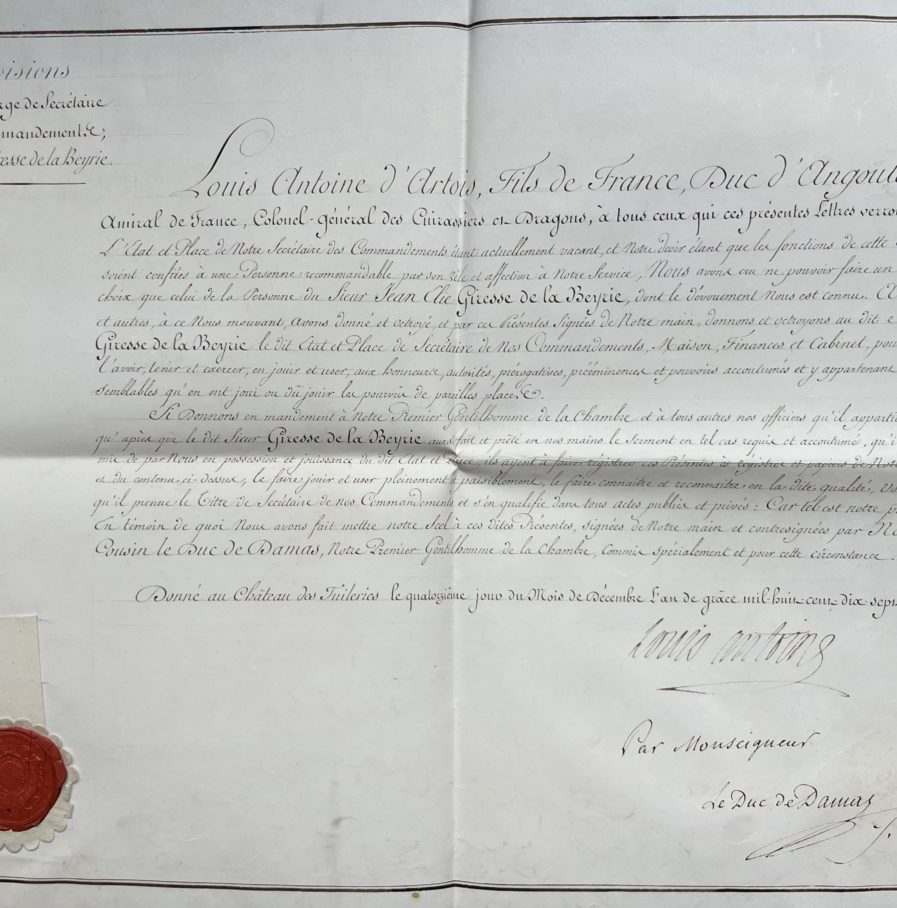 visions
rge de Secrétaire
mandement, &c;
resse de la Beyrie.
Louis Antoine d'Artois, Fils de France, Duc d'Angoul
Amiral de France, Colonel-général des Cuirassiers et Dragons, à tous ceux qui ces présentes Lettres verro
L'Etat et Place de Notre Secrétaire des Commandements étant actuellement vacant, et Notre desir étant que les fonctions de cette
soient confiées à une Personne recommandable par son zèle et affection à Notre Service, Nous avons cru ne pouvoir faire un
choix que celui de la Personne du Sieur Jean Elie Giresse de la Beyrie, dont le dévouement Nous est connu. A
et autres, à ce Nous mouvant, Avons donné et octroyé, et par ces Présentes Signées de Notre main, donnons et octroyons au dit
Giresse de la Beyrie le dit Etat et Place de Secrétaire de Nos Commandements, Maison, Finances et Cabinet, pou
l'avoir, tenir et exercer, en jouir et user, aux honneurs, autorités, prérogatives, prééminences et pouvoirs accoutumés et y appartenant
semblables qu'en ont joui ou dû jouir les pourvus de pareilles places, &c.
Si Donnons en mandement à Notre Premier Gentilhomme de la Chambre et à tous autres nos officiers qu'il apparti
qu'après que le dit Sieur Giresse de la Beyrie aura fait et prêté en nos mains le Serment en tel cas requis et accoutumé, qu'
mis de par Nous en possession et jouissance du dit Etat et Place, ils ayent à faire régistrer ces Présentes ès régistres et papiers de Not
et du contenu ci-dessus, le faire jouir et user pleinement & paisiblement, le faire connaître et reconnaître en la dite qualité,
qu'il prenne le Titre de Secrétaire de nos Commandements et s'en qualifie dans tous actes publics et privés: Car tel est notre p
En témoin de quoi Nous avons fait mettre notre Scel à ces dites Présentes, signées de Notre main et contresignées par N
Cousin le Duc de Damas, Notre Premier Gentilhomme de la Chambre, Commis spécialement et pour cette circonstance.
Donné au Château des Tuileries le quatorzième jour du Mois de Décembre l'an de grâce mil-huit-cent, dix sep
Louis Antoine
Par Monseigneur
Le Duc de Damas